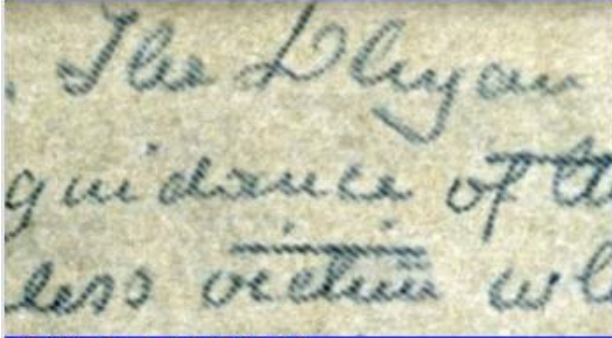 . The Dhyan
guidance of th
less victim wh